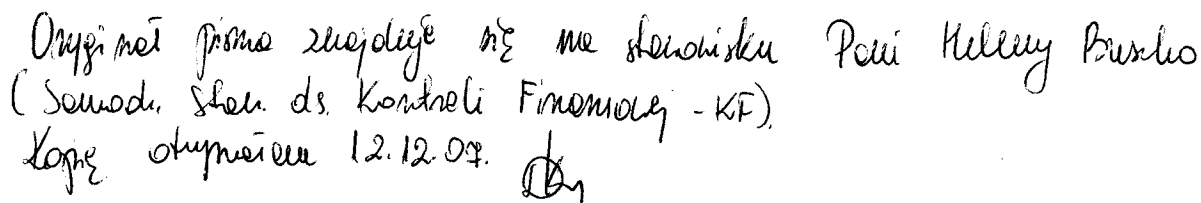 Oryginał pisma znajduje się na stanowisku Pani Heleny
(Samodz. stan. ds. Kontroli Finansowej - KF).
Kopię otrzymałem 12.12.07.